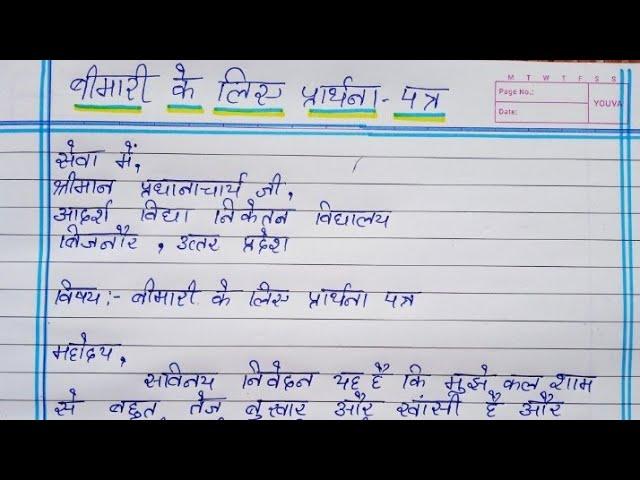 बीमारी के लिए प्रार्थना-पत्र
M T W T F S S
Page No.:
Date:
YOUVA
सेवा में,
श्रीमान प्रधानाचार्य जी,
आदर्श विद्या निकेतन विद्यालय
बिजनौर , उत्तर प्रदेश
विषय:- बीमारी के लिए प्रार्थना पत्र
महोदय,
सविनय निवेदन यह है कि मुझे कल शाम
से बहुत तेज बुखार और खांसी है और